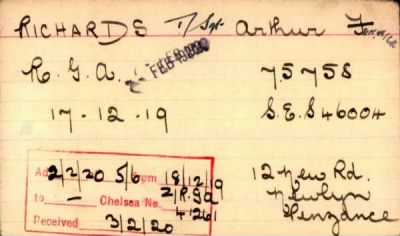 RICHARDS T/Sgt Arthur
R. G. A. 75758
17-12-19 S.E.S 46004
2/2/20 5/6 from 18/12/19
to — Chelsea No. 2/R.GA
41261
Received 3/2/20
12 New Rd.
Newlyn
Penzance